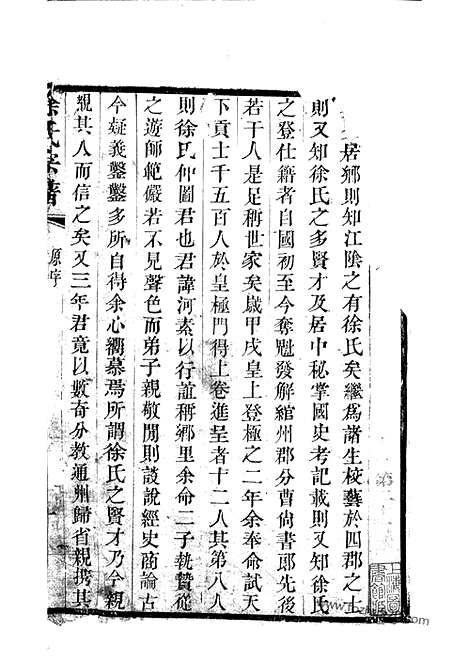 居鄉則知江陰之有徐氏矣繼爲諸生校藝於四郡之士
則又知徐氏之多賢才及居中秘掌國史考記載則又知徐氏
之登仕籍者自國初至今奪魁發解綰州郡分曹尚書郎先後
若干人是足稱世家矣歲甲戌皇上登極之二年余奉命試天
下貢士千五百人於皇極門得上卷進呈者十二人其第八人
則徐氏仲圖君也君諱河素以行誼稱鄉里余命二子執贄從
之遊師範嚴若不見聲色而弟子親敬閒則談說經史商論古
今疑義鑿鑿多所自得余心衡慕焉所謂徐氏之賢才乃今親
親其人而信之矣又三年君竟以數奇分教通州歸省親携其
徐氏宗譜
原序